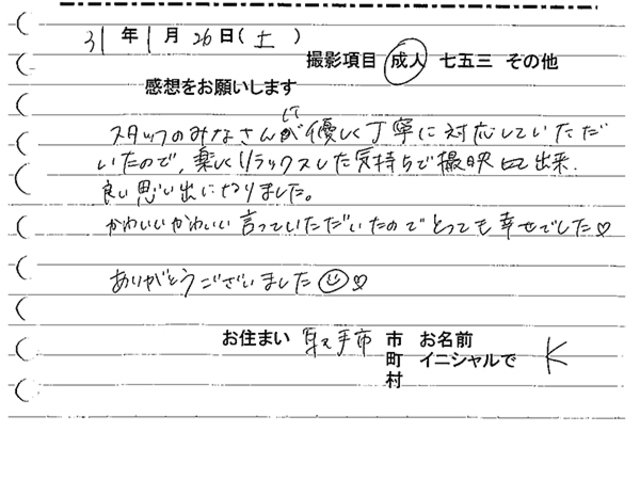 31年1月26日(土)
撮影項目 成人 七五三 その他
感想をお願いします
スタッフのみなさんが優しく丁寧に対応していただ
いたので、楽しくリラックスした気持ちで撮影出来、
良い思い出になりました。
かわいいかわいい言っていただいたのでとっても幸せでした♡
ありがとうございました☺♡
お住まい 取手市 市町村 お名前 イニシャルで K